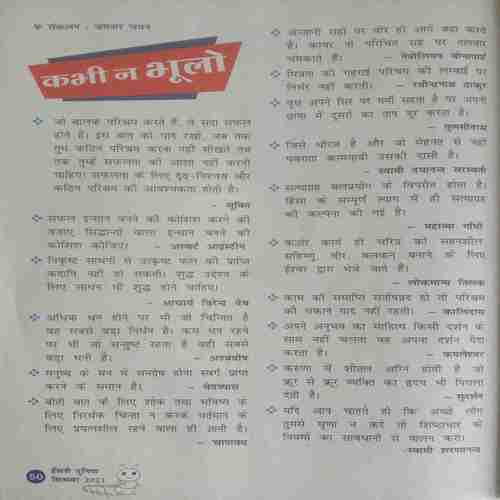 ❖ संकलन : जसवन्त पवन
कभी न भूलो
❖ जो बालक परिश्रम करते हैं, वे सदा सफल
होते हैं। इस बात को याद रखो, जब तक
तुम कठिन परिश्रम करना नहीं सीखते तब
तक तुम्हें सफलता की आशा नहीं करनी
चाहिए। सफलता के लिए दृढ़-निश्चय और
कठिन परिश्रम की आवश्यकता होती है।
– सूक्ति
❖ सफल इन्सान बनने की कोशिश करने की
बजाए सिद्धान्तों वाला इन्सान बनने की
कोशिश कीजिए। – अल्बर्ट आइंस्टीन
❖ निकृष्ट साधनों से उत्कृष्ट फल की प्राप्ति
कदापि नहीं हो सकती। शुद्ध उद्देश्य के
लिए साधन भी शुद्ध होने चाहिए।
– आचार्य विनोबा भावे
❖ अधिक धन होने पर भी जो चिन्तित है
वह सबसे बड़ा निर्धन है। कम धन रहने
पर भी जो सन्तुष्ट रहता है वही सबसे
बड़ा धनी है। – अश्वघोष
❖ मनुष्य के मन में सन्तोष होना स्वर्ग प्राप्त
करने के समान है। – वेदव्यास
❖ बीती बात के लिए शोक तथा भविष्य के
लिए निरर्थक चिन्ता न करके वर्तमान के
लिए प्रयत्नशील रहने वाला ही ज्ञानी है।
– चाणक्य
❖ अन्जानी राहों पर वीर ही आगे बढ़ा करते
हैं। कायर तो परिचित राह पर तलवार
चमकाते हैं। – नेपोलियन बोनापार्ट
❖ मित्रता की गहराई परिचय की लम्बाई पर
निर्भर नहीं करती। – रवीन्द्रनाथ ठाकुर
❖ वृक्ष अपने सिर पर गर्मी सहता है पर अपनी
छाया में दूसरों का ताप दूर करता है।
– तुलसीदास
❖ जिसमें धीरज है और जो मेहनत से नहीं
घबराता कामयाबी उसकी दासी है।
– स्वामी दयानन्द सरस्वती
❖ सत्याग्रह बलप्रयोग के विपरीत होता है।
हिंसा के सम्पूर्ण त्याग में ही सत्याग्रह
की कल्पना की गई है।
– महात्मा गाँधी
❖ कठोर कार्य ही चरित्र को सहनशील
सहिष्णु, धीर, बलवान बनाने के लिए
ईश्वर द्वारा भेजे जाते हैं।
– लोकमान्य तिलक
❖ काम की समाप्ति संतोषप्रद हो तो परिश्रम
की थकान याद नहीं रहती। – कालिदास
❖ अपने अनुभव का साहित्य किसी दर्शन के
साथ नहीं चलता वह अपना दर्शन पैदा
करता है। – कमलेश्वर
❖ करुणा में शीतल अग्नि होती है जो
क्रूर से क्रूर व्यक्ति का हृदय भी पिघला
देती है। – सुदर्शन
❖ यदि आप चाहते हो कि अच्छे लोग
तुमसे घृणा न करें तो शिष्टाचार के
नियमों का सावधानी से पालन करो।
–स्वामी शरणानन्द
50 हँसती दुनिया
सितम्बर 2021